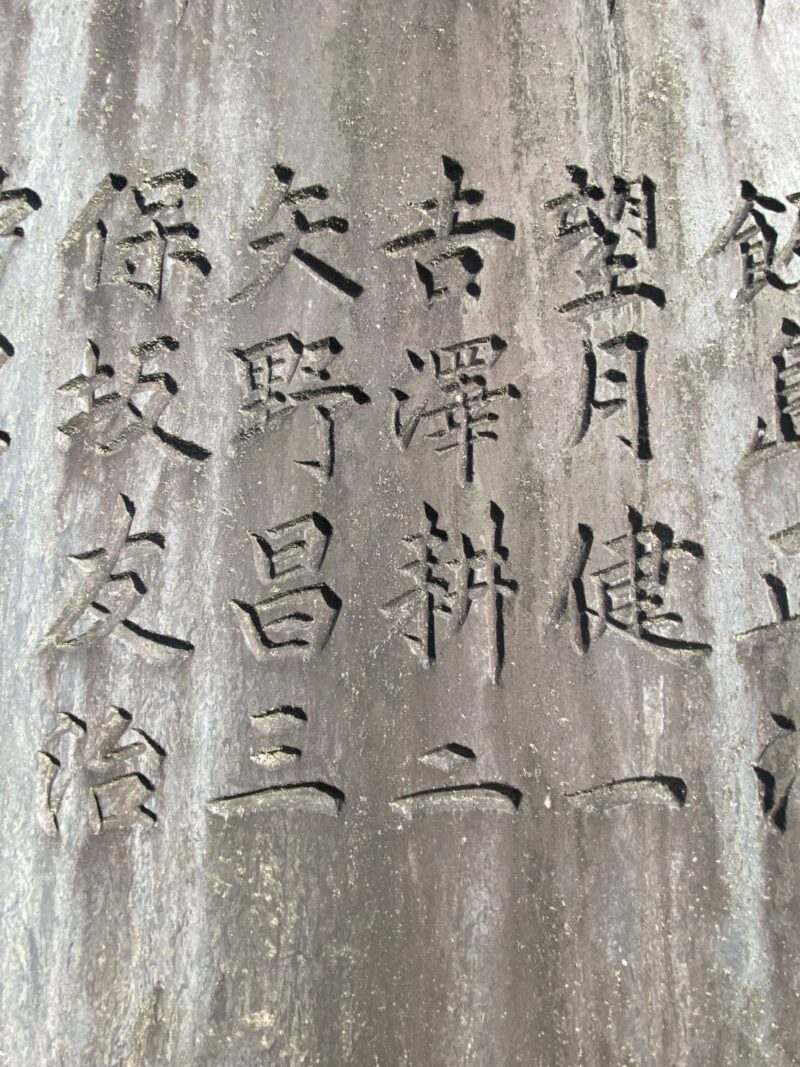 飯島正治
望月健一
吉澤耕二
矢野昌三
保坂友治